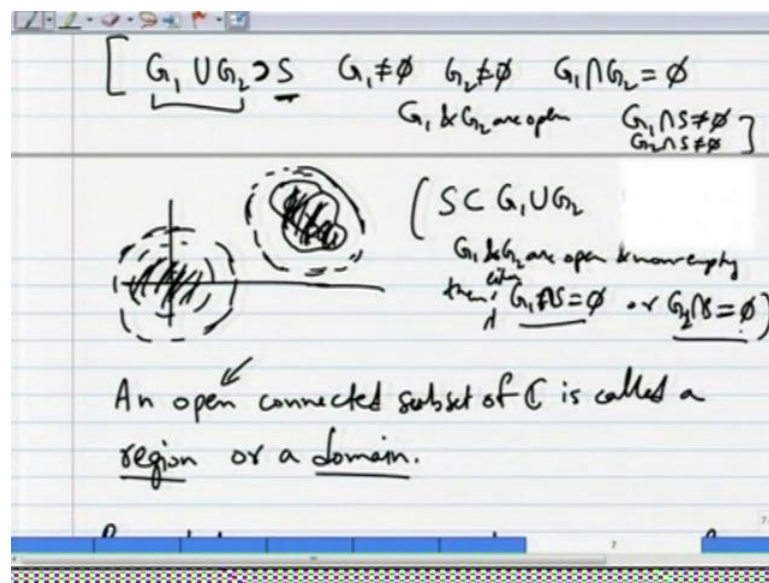 [ G₁ ∪ G₂ ⊃ S G₁ ≠ ∅ G₂ ≠ ∅ G₁ ∩ G₂ = ∅
G₁ & G₂ are open G₁ ∩ S ≠ ∅
G₂ ∩ S ≠ ∅ ]
( S ⊂ G₁ ∪ G₂
G₁ & G₂ are open & non empty
then either G₁ ∩ S = ∅ or G₂ ∩ S = ∅ )
An open connected subset of ℂ is called a
region or a domain.
7